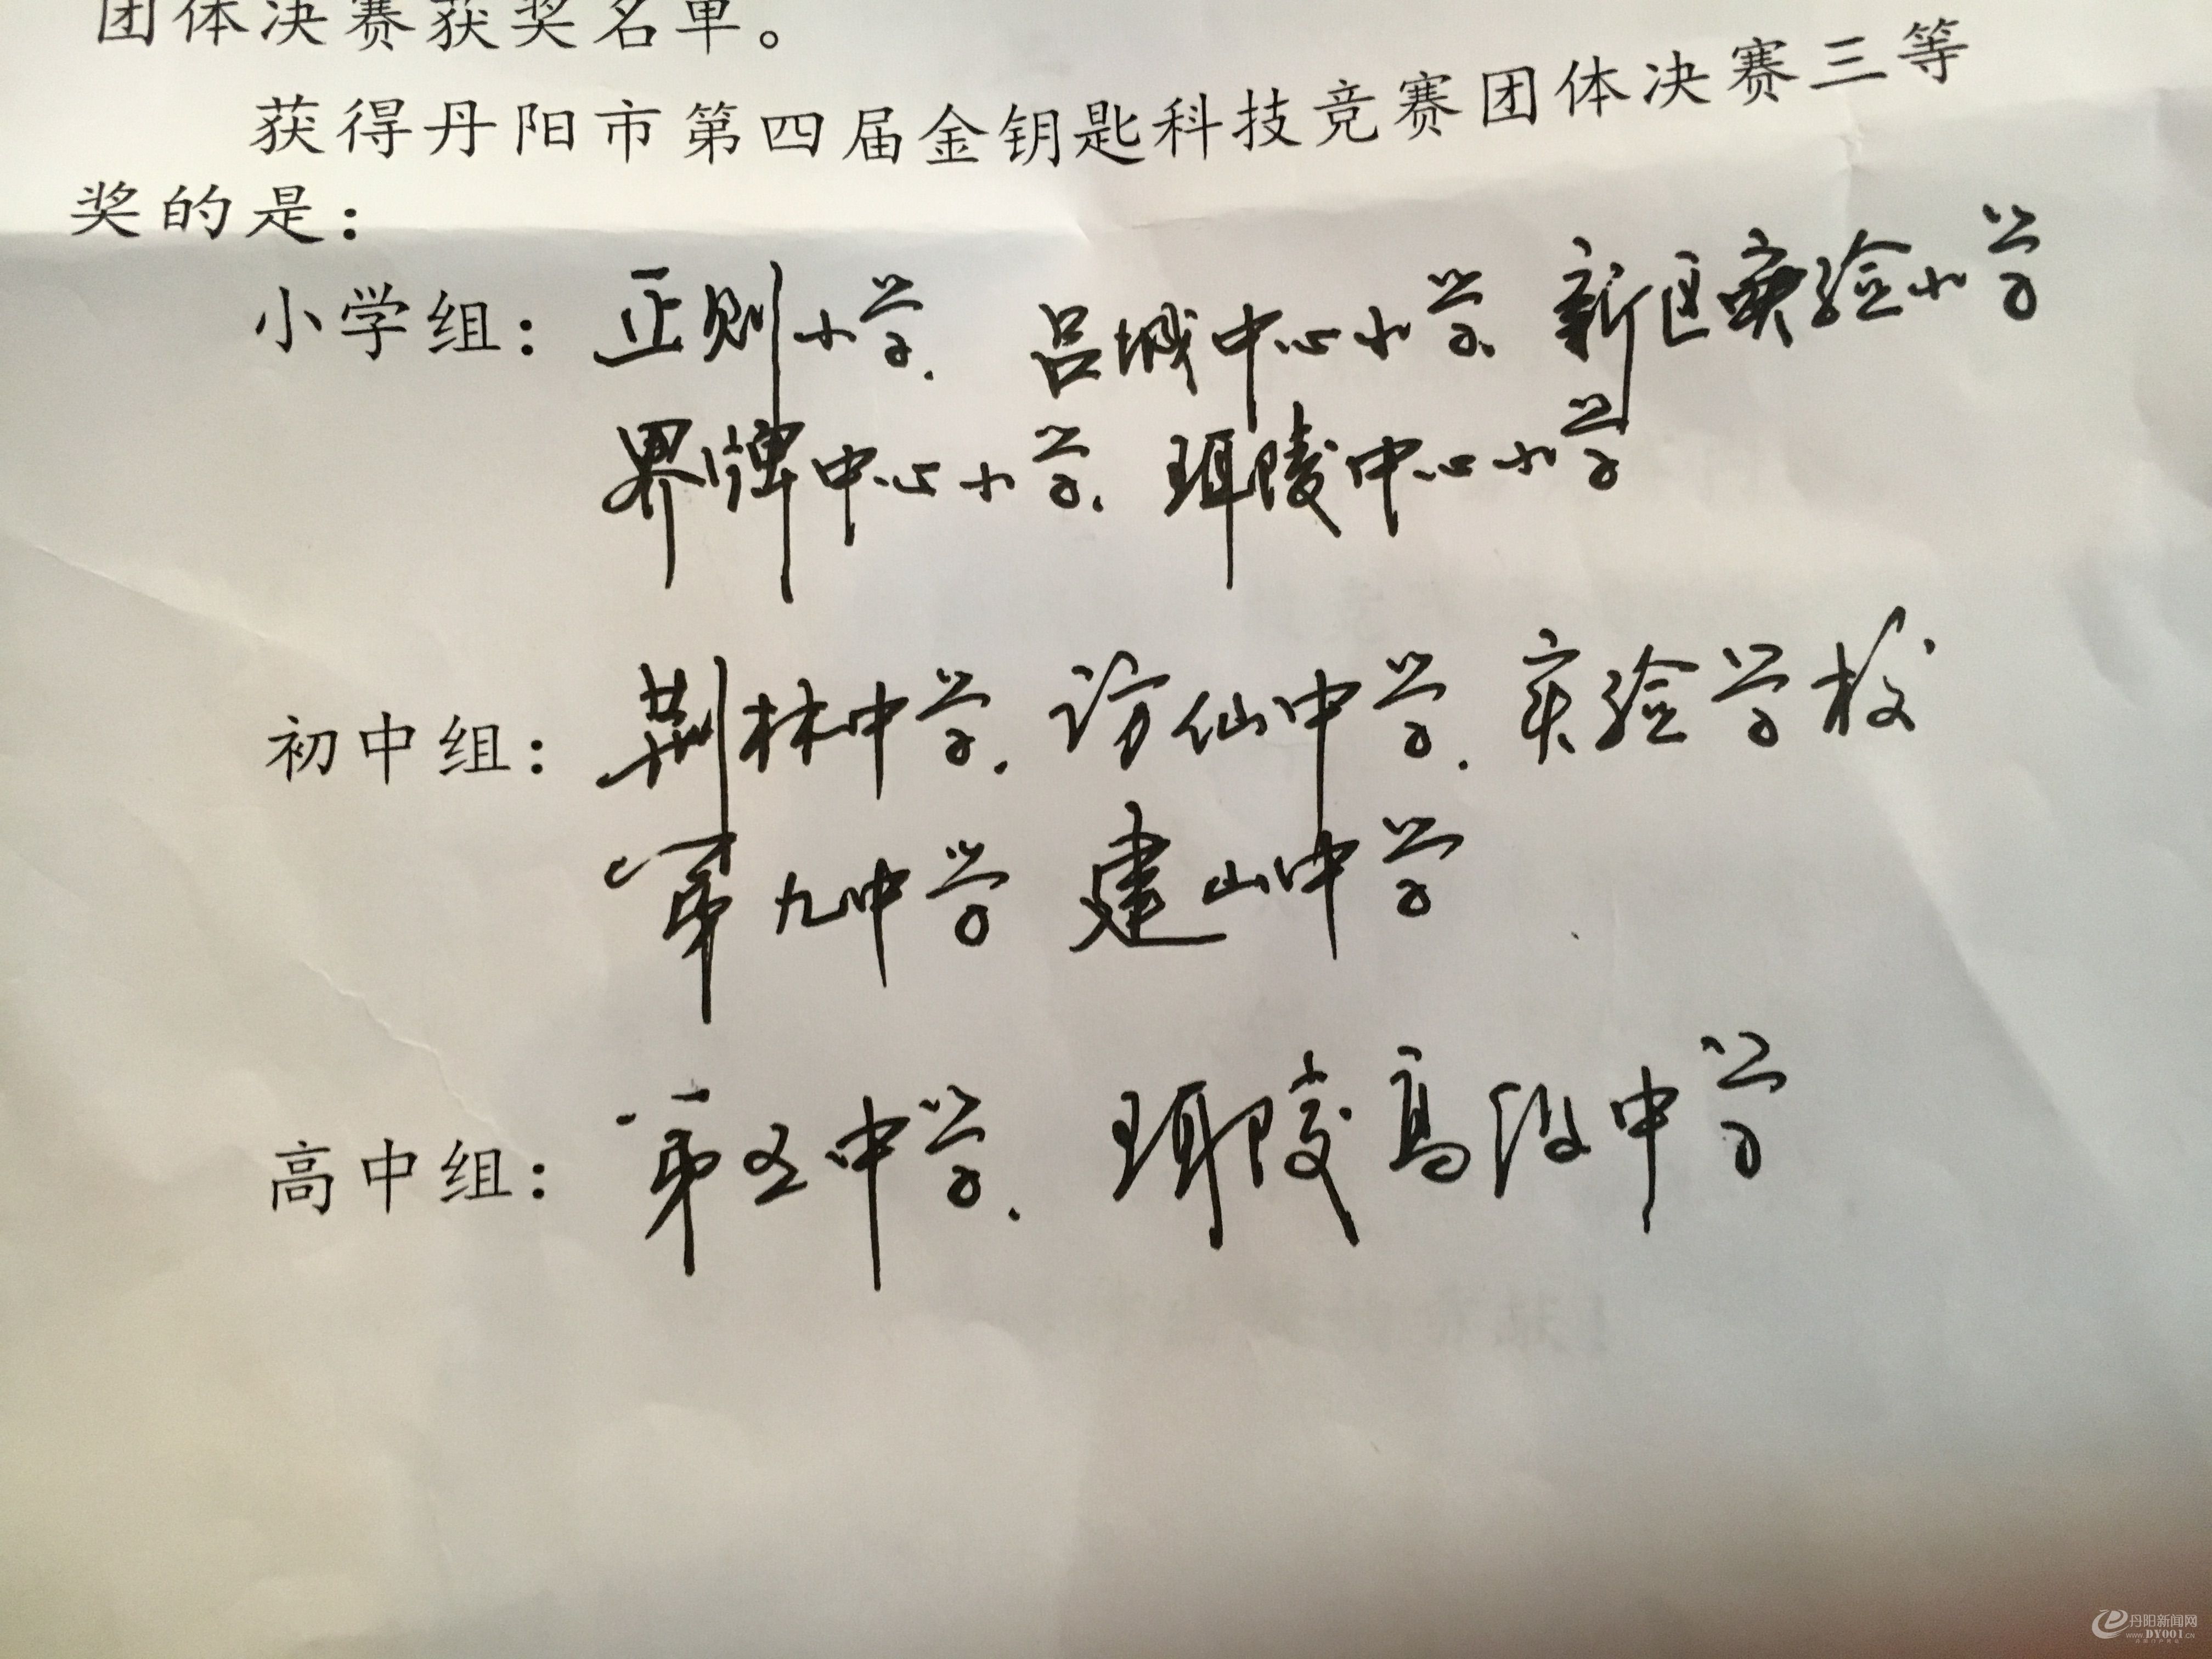 团体决赛获奖名单。
获得丹阳市第四届金钥匙科技竞赛团体决赛三等
奖的是：
小学组：正则小学、吕城中心小学、新区实验小学
界牌中心小学、珥陵中心小学
初中组：荆林中学、访仙中学、实验学校
第九中学 建山中学
高中组：第五中学、珥陵高级中学
丹阳新闻网
WWW.DY001.CN